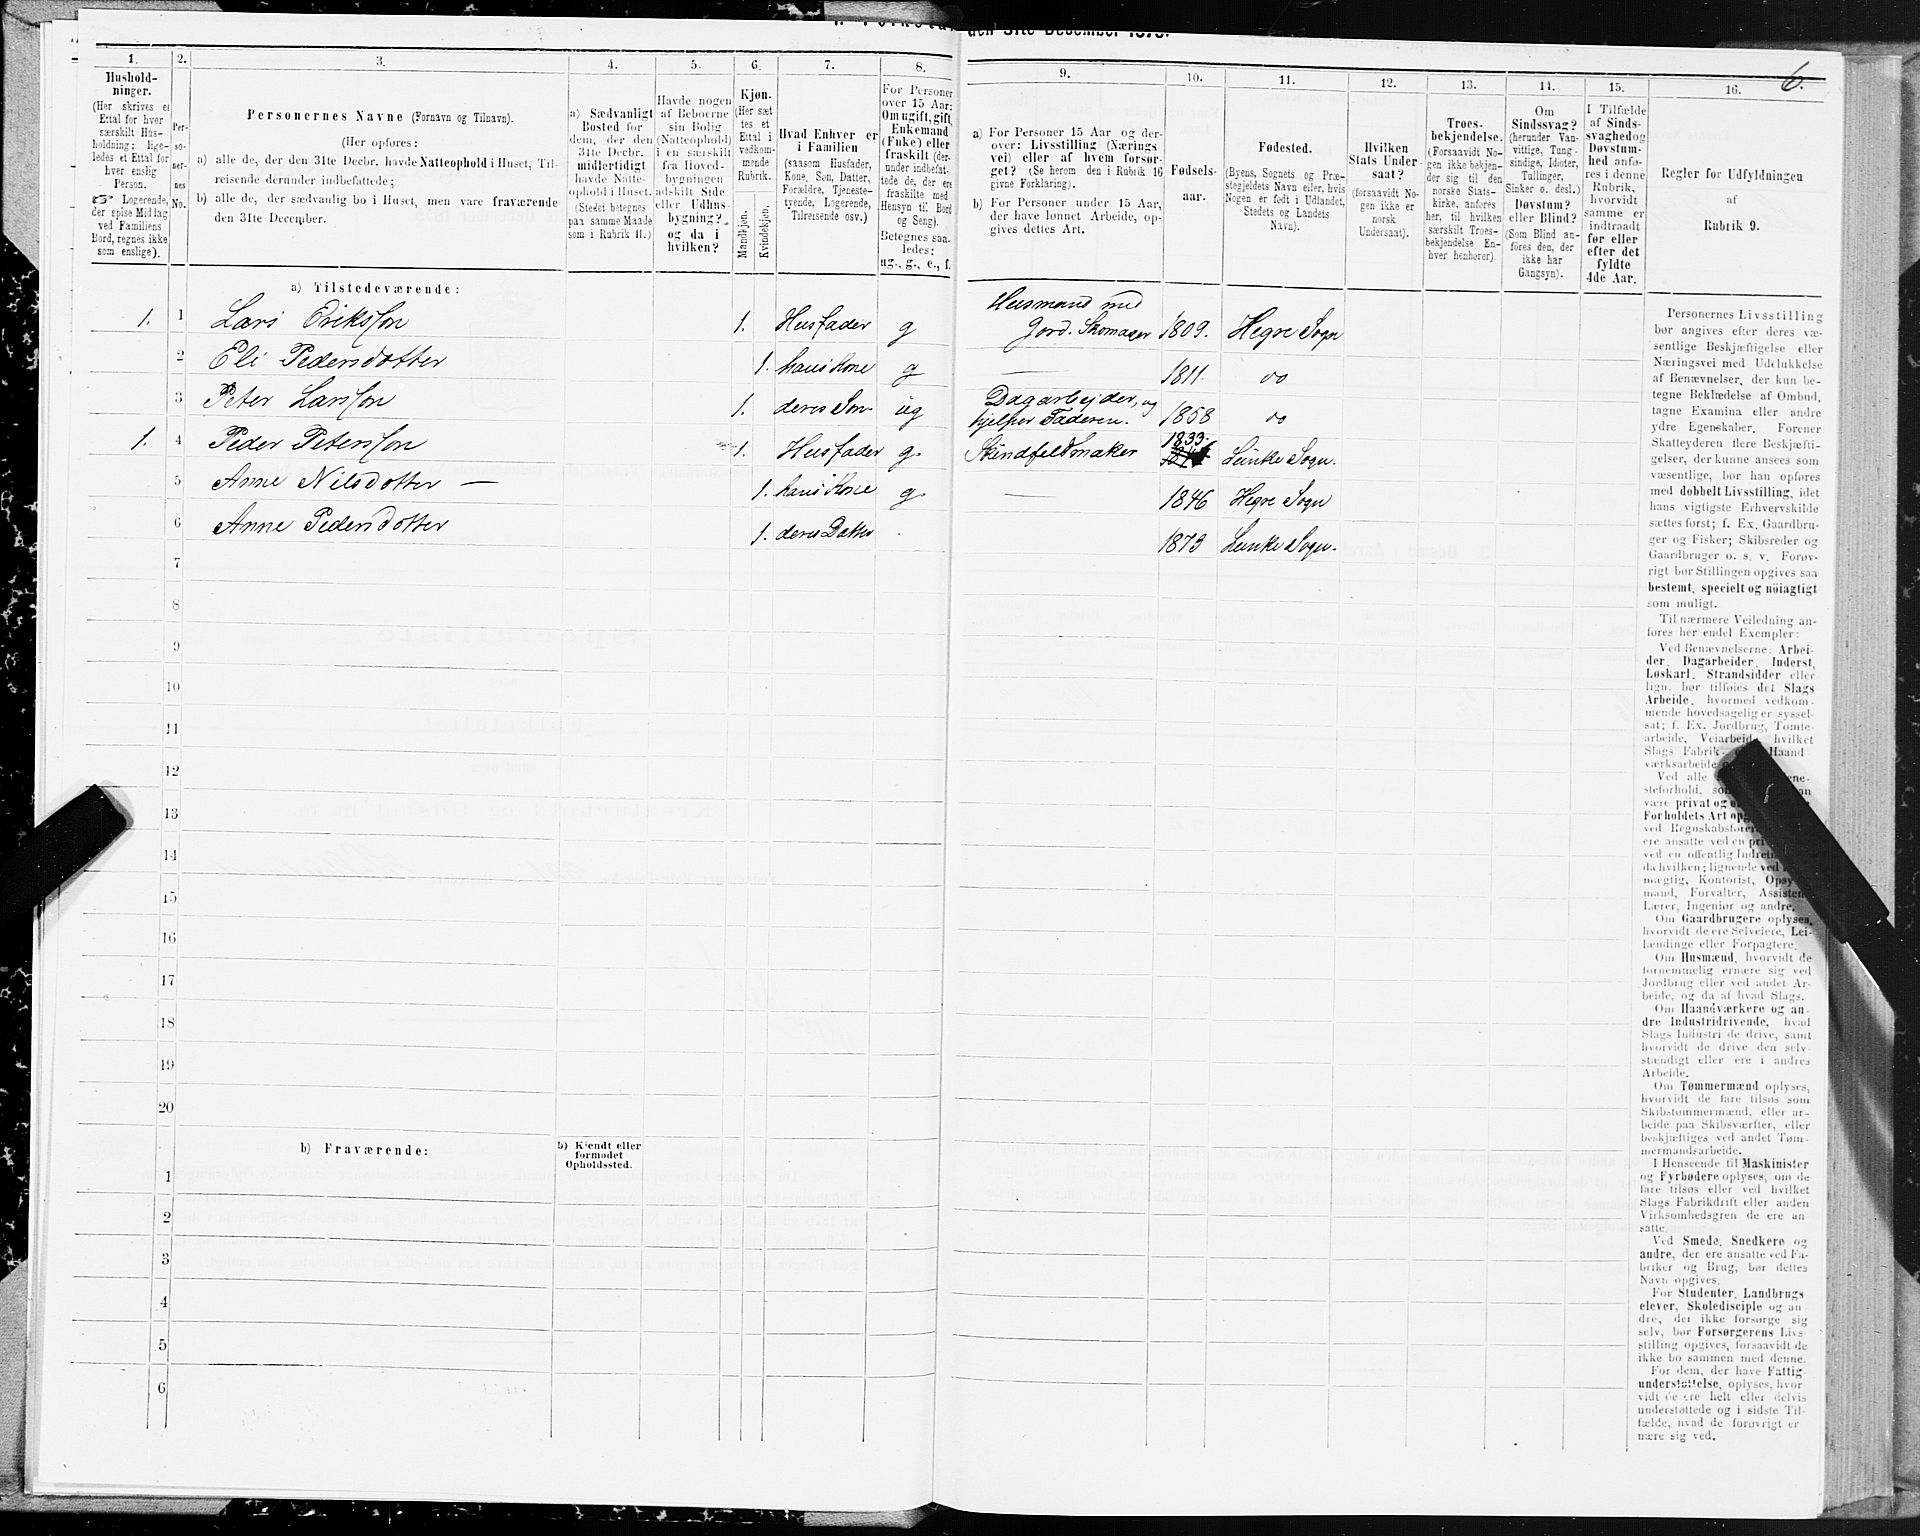 den 31te December 1875.
6.
1.
Hushold-
ninger.
(Her skrives et
Ettal for hver
særskilt Hus-
holdning; lige-
ledes et Ettal for
hver enslig
Person.
Logerende,
der spise Middag
ved Familiens
Bord, regnes ikke
som enslige).
2.
Per-
so-
ner-
nes
No.
3.
Personernes Navne (Fornavn og Tilnavn).
(Her opføres:
a) alle de, der den 31te Decbr. havde Natteophold i Huset, Til-
reisende derunder indbefattede;
b) alle de, der sædvanlig bo i Huset, men vare fraværende
den 31te December.
4.
a) Sædvanligt
Bosted for
dem, der den
31te Decbr.
midlertidigt
havde Natte-
ophold i Huset.
(Stedet betegnes
paa samme Maade
som i Rubrik 11.)
5.
Havde nogen
af Beboerne
sin Bolig
(Natteophold)
i en særskilt
fra Hoved-
bygningen
adskilt Side
eller Udhus-
bygning?
og da i
hvilken?
6.
Kjøn.
(Her sæt-
tes et
Ettal i
vedkom-
mende
Rubrik.
Mandkjøn.
Kvindekjøn.
7.
Hvad Enhver er
i Familien
(saasom Husfader,
Kone, Søn, Datter,
Forældre, Tjeneste-
tyende, Logerende,
Tilreisende osv.)
8.
For Personer
over 15 Aar:
Om ugift, gift,
Enkemand
(Enke) eller
fraskilt (der-
under indbefat-
tede de, der ere
fraskilte med
Hensyn til Bord
og Seng).
Betegnes saa-
ledes:
ug., g., e., f.
9.
a) For Personer 15 Aar og der-
over: Livsstilling (Nærings-
vei) eller af hvem forsør-
get? (Se herom den i Rubrik 16
givne Forklaring).
b) For Personer under 15 Aar,
der have lønnet Arbeide, op-
gives dettes Art.
10.
Fødsels-
aar.
11.
Fødested.
(Byens, Sognets og Præ-
stegjeldets Navn eller, hvis
Nogen er født i Udlandet,
Stedets og Landets
Navn).
12.
Hvilken
Stats Under-
saat?
(forsaavidt No-
gen ikke er
norsk
Undersaat).
13.
Troes-
bekjendelse.
(Forsaavidt No-
gen ikke bekjen-
der sig til den
norske Stats-
kirke, anføres
her, til hvilken
særskilt Troes-
bekjendelse En-
hver henhører).
14.
Om
Sindssvag?
(herunder Van-
vittige, Tung-
sindige, Idioter,
Tullinger,
Sinker o. desl.)
Døvstum?
eller Blind?
(Som Blind an-
føres den, der
ikke har
Gangsyn).
15.
I Tilfælde
af Sinds-
svaghed og
Døvstum-
hed anfø-
res i denne
Rubrik,
hvorvidt
samme er
indtraadt
før eller
efter det
fyldte
4de Aar.
16.
Regler for Udfyldningen
af
Rubrik 9.
a) Tilstedeværende:
1. 1 Lars Eriksson 1. Husfader g Husmand med
Jord. Skomager 1809. Hegre Sogn
2 Eli Pedersdotter 1. hans Kone g — 1811. do
3 Peter Larsson 1. deres Søn ug Dagarbejder, og
hjelper Faderen. 1858 do
1. 4 Peder Petersson 1. Husfader g. Skindfeldmaker 1833. Leinke Sogn.
5 Anne Nilsdotter — 1. hans Kone g. — 1846 Hegre Sogn
6 Anne Pedersdotter 1. deres Datter 1873 Leinke Sogn.
7
8
9
10
11
12
13
14
15
16
17
18
19
20
b) Fraværende:
b) Kjendt eller
formodet
Opholdssted.
1
2
3
4
5
6
Personernes Livsstilling
bør angives efter deres væ-
sentlige Beskjæftigelse eller
Næringsvei med Udelukkelse
af Benævnelser, der kun be-
tegne Beklædelse af Ombud,
tagne Examina eller andre
ydre Egenskaber. Forener
Skatteyderen flere Beskjæfti-
gelser, der kunne ansees som
væsentlige, bør han opføres
med dobbelt Livsstilling, idet
hans vigtigste Erhvervskilde
sættes først; f. Ex. Gaardbru-
ger og Fisker; Skibsreder og
Gaardbruger o. s. v. Forøv-
rigt bør Stillingen opgives saa
bestemt, specielt og nøiagtigt
som muligt.
Til nærmere Veiledning an-
føres her endel Exempler:
Ved Benævnelserne: Arbei-
der, Dagarbeider, Inderst,
Løskarl, Strandsidder eller
lign. bør tilføies det Slags
Arbeide, hvormed vedkom-
mende hovedsagelig er syssel-
sat; f. Ex. Jordbrug, Tomte-
arbeide, Veiarbeide, hvilket
Slags Fabrik- Haand-
værksarbeide
Ved alle
steforhold,
være privat og
Forholdets Art
ved Regnskabsfører
ere ansatte ved en
ved en offentlig
da hvilken; lignende ved
mægtig, Kontorist,
mand, Forvalter,
Lærer, Ingeniør og andre.
Om Gaardbrugere oplyses,
hvorvidt de ere Selveiere, Lei-
lændinge eller Forpagtere.
Om Husmænd, hvorvidt de
fornemmelig ernære sig ved
Jordbrug eller ved andet Ar-
beide, og da af hvad Slags.
Om Haandværkere og an-
dre Industridrivende, hvad
Slags Industri de drive, samt
hvorvidt de drive den selv-
stændigt eller ere i andres
Arbeide.
Om Tømmermænd oplyses,
hvorvidt de fare tilsøs som
Skibstømmermænd, eller ar-
beide paa Skibsværfter, eller
beskjæftiges ved andet Tøm-
mermandsarbeide.
I Henseende til Maskinister
og Fyrbødere oplyses, om de
fare tilsøs eller ved hvilket
Slags Fabrikdrift eller anden
Virksomhedsgren de ere an-
satte.
Ved Smede, Snedkere og
andre, der ere ansatte ved Fa-
briker og Brug, bør dettes
Navn opgives.
For Studenter, Landbrugs-
elever, Skoledisciple og an-
dre, der ikke forsørge sig
selv, bør Forsørgerens Livs-
stilling opgives, forsaavidt de
ikke bo sammen med denne.
For dem, der have Fattig-
understøttelse, oplyses, hvor-
vidt de ere helt eller delvis
understøttede og i sidste Til-
fælde, hvad de forøvrigt er-
nære sig ved.